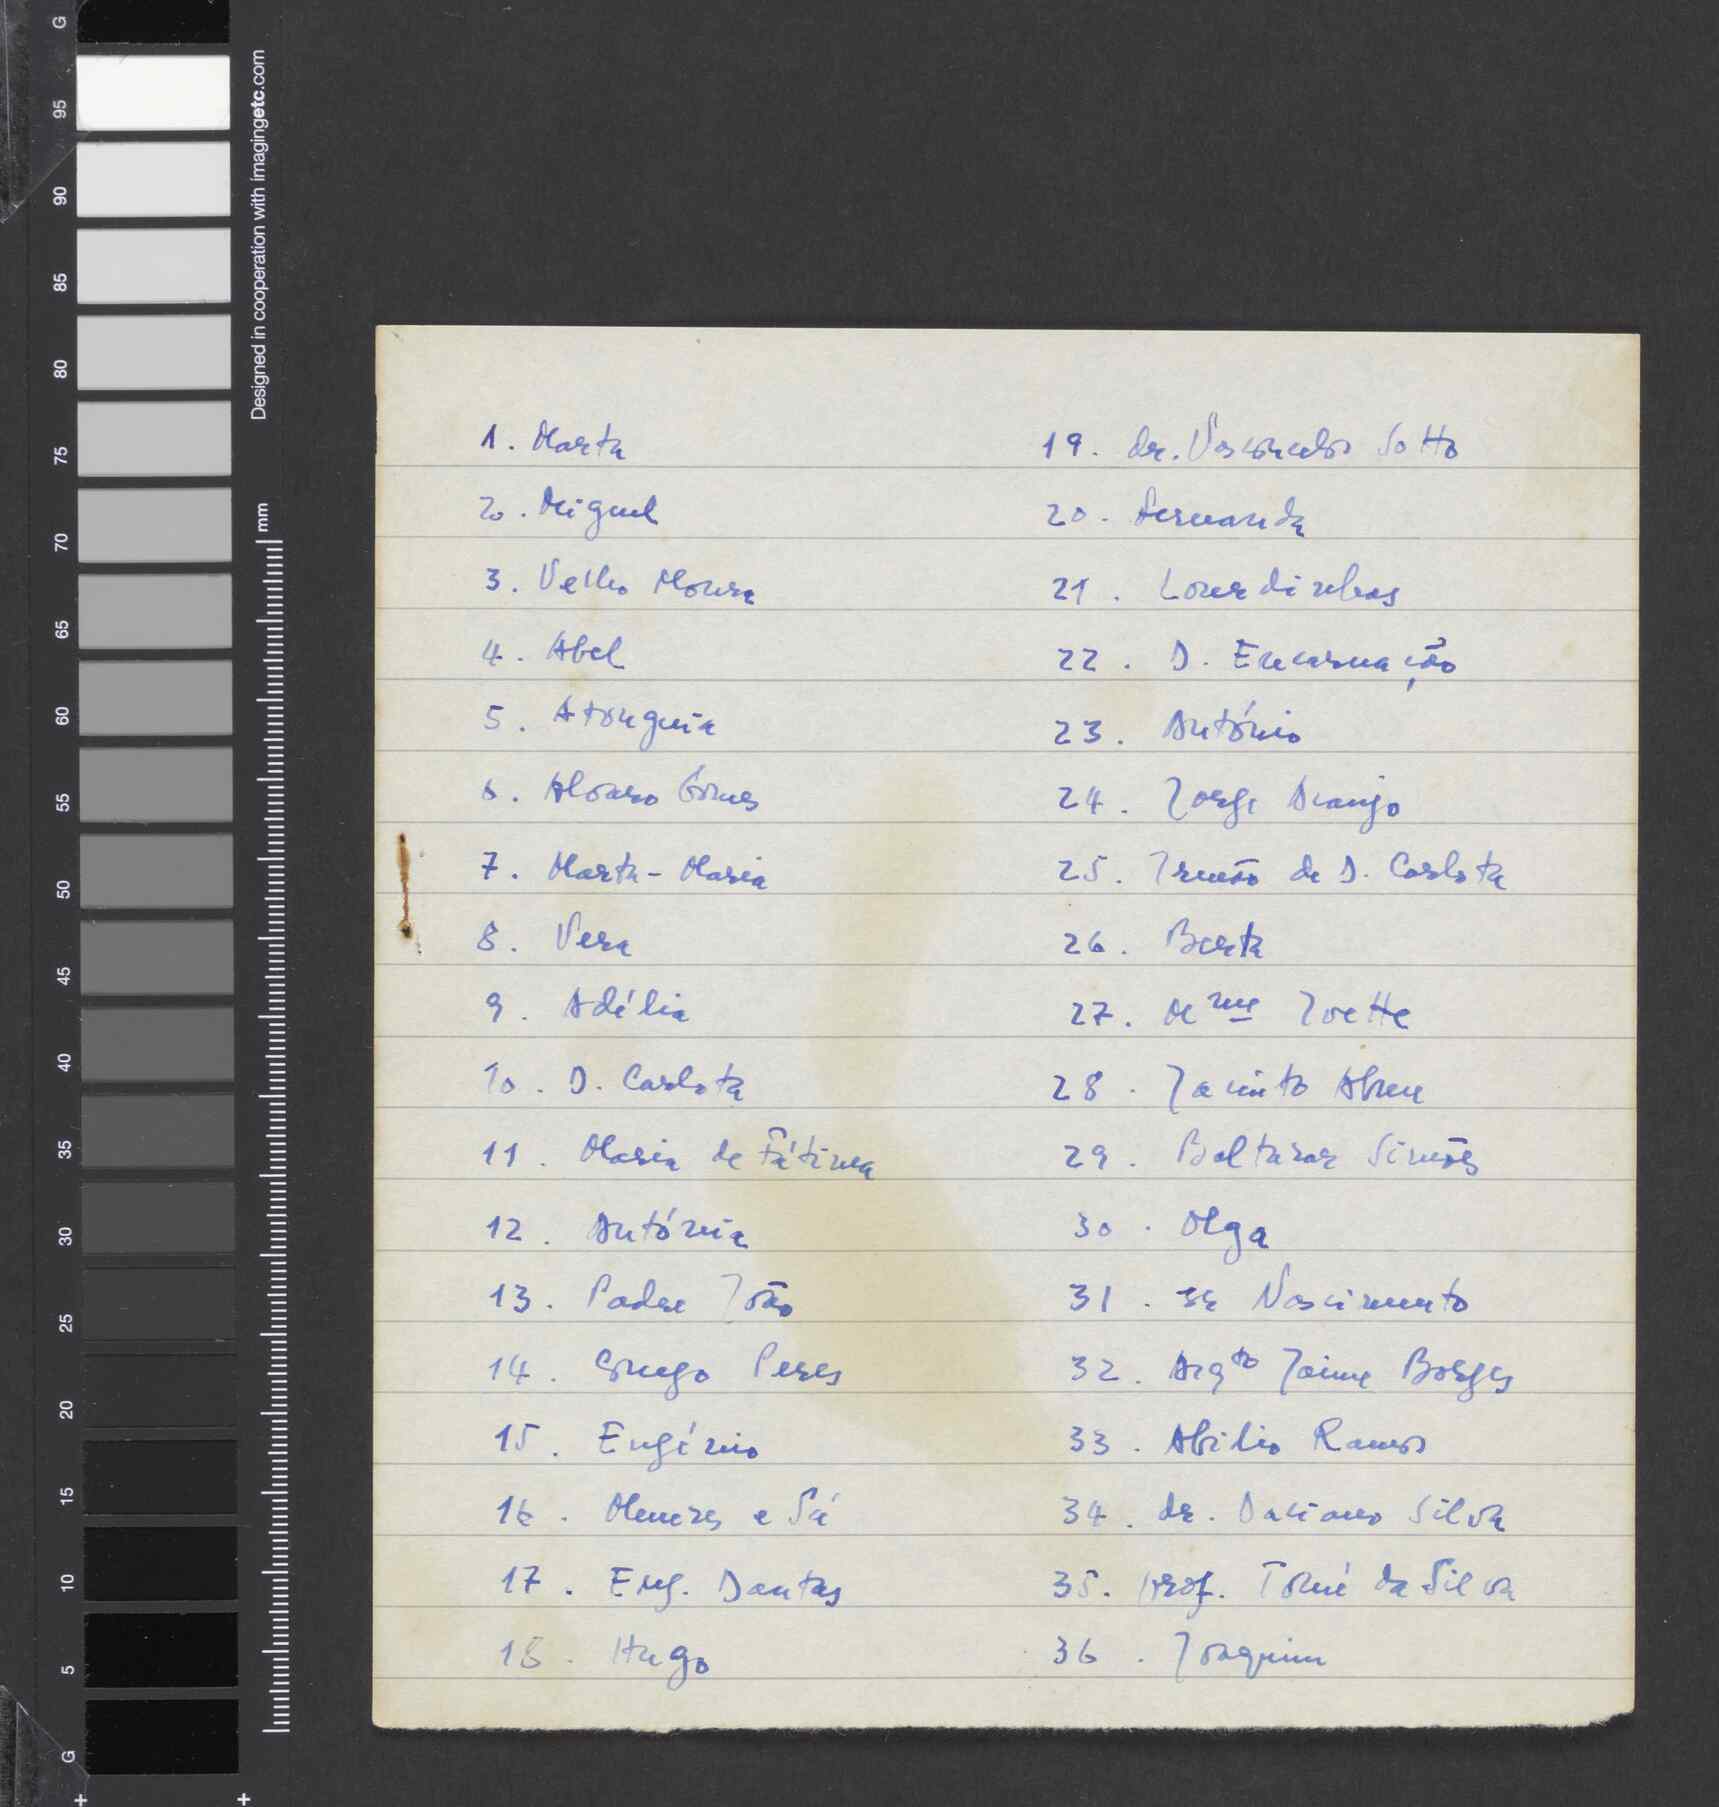 1. Marta
2. Miguel
3. Velho Moura
4. Abel
5. Atouguia
6. Alvaro Gomes
7. Marta-Maria
8. Vera
9. Adélia
10. D. Carlota
11. Maria de Fátima
12. Antónia
13. Padre João
14. Peres
15. Eugénio
16. Menezes e Sá
17. Eng. Dantas
18. Hugo
19. dr. Vasconcelos Sotto
20. Fernanda
21. Lourdinhas
22. D. Encarnação
23. António
24. Jorge Araujo
25. Irmão de D. Carlota
26. Berta
27. Mme Ivette
28. Jacinto Abreu
29. Baltazar Simões
30. Olga
31. sr Nascimento
32. Arqto Jaime Borges
33. Abilio Ramos
34. dr. Daciano Silva
35. prof. Tomé da Silva
36. Joaquim
G
95
90
85
80
75
70
65
60
55
50
45
40
35
30
25
20
15
10
5
G
Designed in cooperation with imagingetc.com
mm